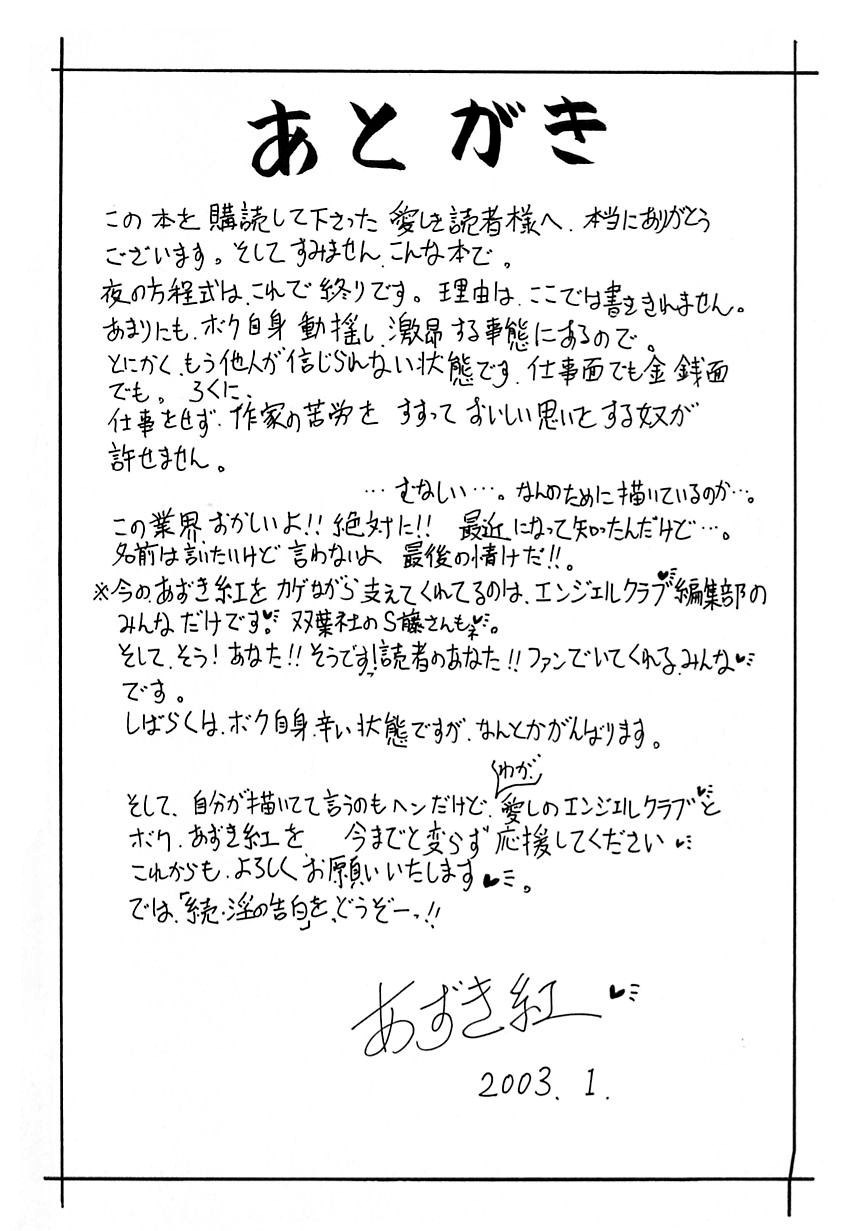 あとがき
この本を購読して下さった愛しき読者様へ、本当にありがとう
ございます。そしてすみません、こんな本で。
夜の方程式は、これで終りです。理由は、ここでは書ききれません。
あまりにも、ボク自身動揺し、激昂する事態にあるので。
とにかく、もう他人が信じられない状態です、仕事面でも金銭面
でも。ろくに、
仕事をせず、作家の苦労をすすっておいしい思いをする奴が
許せません。
…むなしい…。なんのために描いているのか…。
この業界、おかしいよ!!絶対に!!最近になって知ったんだけど…。
名前は言いたいけど言わないよ 最後の情けだ!!。
※今の、あずき紅をカゲながら支えてくれてるのは、エンジェルクラブ♥編集部の
みんなだけです♥。双葉社のS藤さんもネ♥。
そして、そう!あなた!!そうです!読者のあなた!!ファンでいてくれる、みんな♥
です。
しばらくは、ボク自身、辛い状態ですが、なんとかがんばります。
わが、
そして、自分が描いてて言うのもヘンだけど、愛しのエンジェルクラブ♥と
ボク、あずき紅を、今までと変らず応援してください♥
これからも、よろしくお願いいたします♥。
では、「続・淫の告白」を、どうぞーっ!!
あずき紅♥
2003. 1.